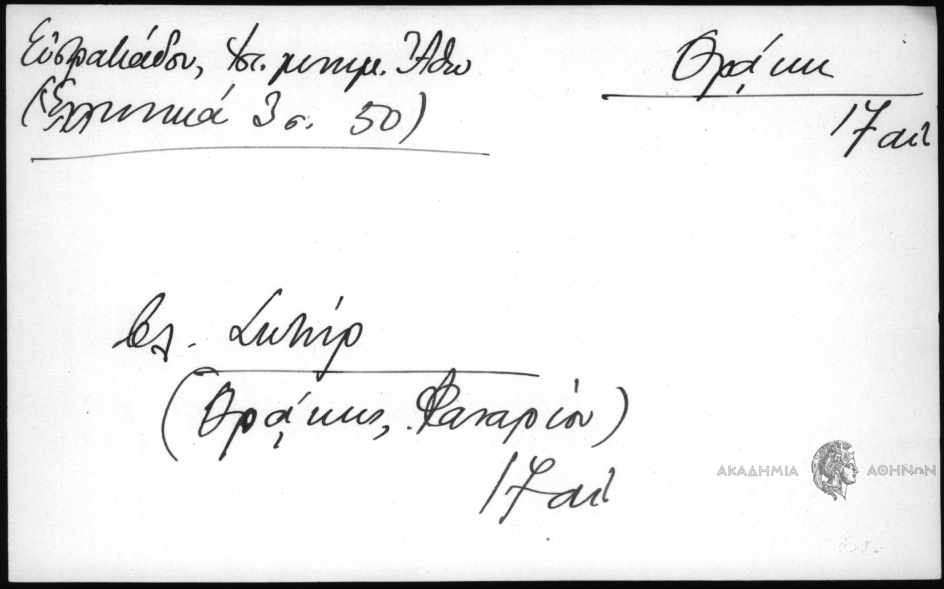 Εὐστρατιάδου, Ἱστ. μνημ. Ἄθω
(Ἑλληνικά 3 σ. 50)
Θρᾴκη
17 αἰ
βλ. Σωτήρ
(Θρᾴκης, Φαναρίου)
17 αἰ
ΑΚΑΔΗΜΙΑ ΑΘΗΝΩΝ